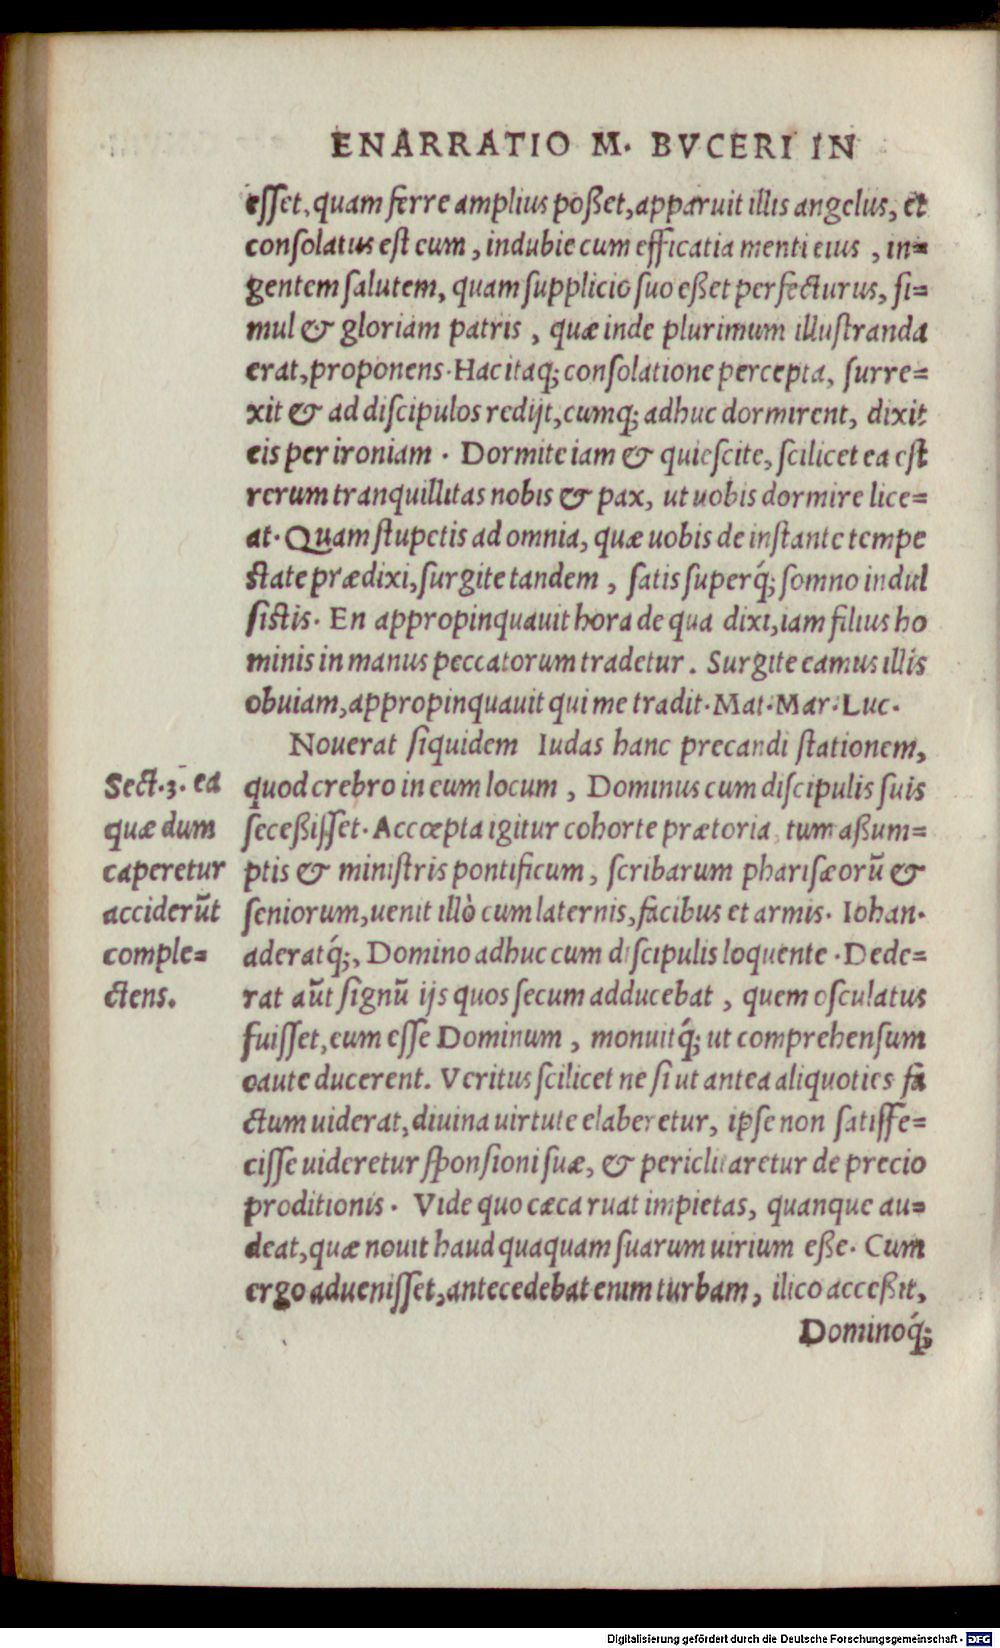 ENARRATIO M. BVCERI IN
eſſet, quam ferre amplius poßet, apparuit illis angelus, et
conſolatus eſt eum, indubie cum efficatia menti eius, in=
gentem ſalutem, quam ſupplicio ſuo eßet perfecturus, ſi=
mul & gloriam patris, quæ inde plurimum illuſtranda
erat, proponens. Hac itaq; conſolatione percepta, ſurre=
xit & ad diſcipulos redijt, cumq; adhuc dormirent, dixit
eis per ironiam. Dormite iam & quieſcite, ſcilicet ea eſt
rerum tranquillitas nobis & pax, ut uobis dormire lice=
at. Quam ſtupetis ad omnia, quæ uobis de inſtante tempe
ſtate prædixi, ſurgite tandem, ſatis ſuperq́; ſomno indul
ſiſtis. En appropinquauit hora de qua dixi, iam filius ho
minis in manus peccatorum tradetur. Surgite eamus illis
obuiam, appropinquauit qui me tradit. Mat. Mar. Luc.
Nouerat ſiquidem Iudas hanc precandi ſtationem,
quod crebro in eum locum, Dominus cum diſcipulis ſuis
ſeceßiſſet. Accœpta igitur cohorte prætoria, tum aßum=
ptis & miniſtris pontificum, ſcribarum phariſæorū &
ſeniorum, uenit illò cum laternis, facibus et armis. Iohan.
aderatq́;, Domino adhuc cum diſcipulis loquente. Dede=
rat aūt ſignū ijs quos ſecum adducebat, quem oſculatus
fuiſſet, eum eſſe Dominum, monuitq́; ut comprehenſum
caute ducerent. Veritus ſcilicet ne ſi ut antea aliquoties fa
ctum uiderat, diuina uirtute elaberetur, ipſe non ſatiſfe=
ciſſe uideretur ſponſioni ſuæ, & periclitaretur de precio
proditionis. Vide quo cæca ruat impietas, quanque au=
deat, quæ nouit haud quaquam ſuarum uirium eße. Cum
ergo adueniſſet, antecedebat enim turbam, ilico acceßit,
Dominoq́;
Sect. 3. ea
quæ dum
caperetur
acciderūt
comple=
ctens.
Digitalisierung gefördert durch die Deutsche Forschungsgemeinschaft - DFG